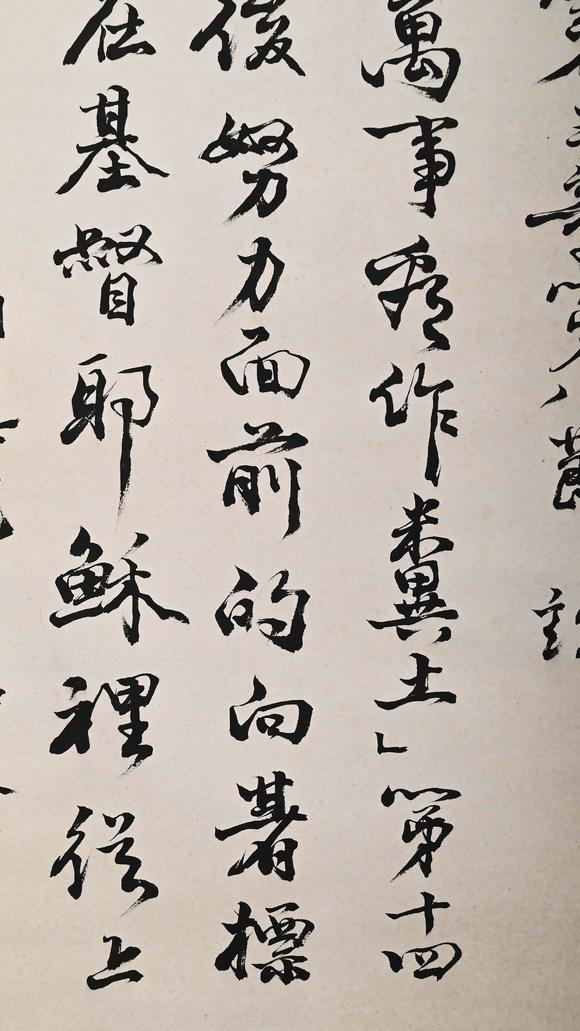 第八節
萬事看作糞土」第十四
後努力面前的向著標
在基督耶穌裡從上